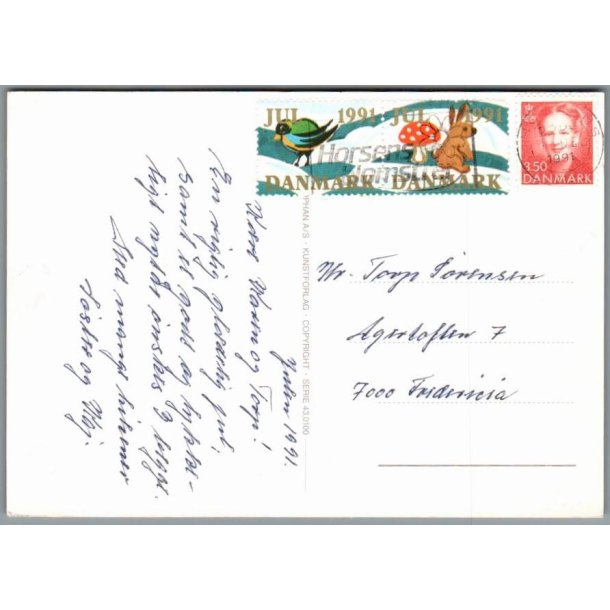 Julen 1991.
Kære Maren og Torp!
En rigtig glædelig jul
samt et godt og lykke-
ligt nytår ønskes I begge.
Med mange hilsner
og
JUL 1991 JUL 1991
DANMARK DANMARK
Horsens
Hjemsu
1991
3.50
DANMARK
PHAN A/S · KUNSTFORLAG · COPYRIGHT · SERIE 43.0100
Hr. Torp Sørensen
Agertoften 7
7000 Fredericia